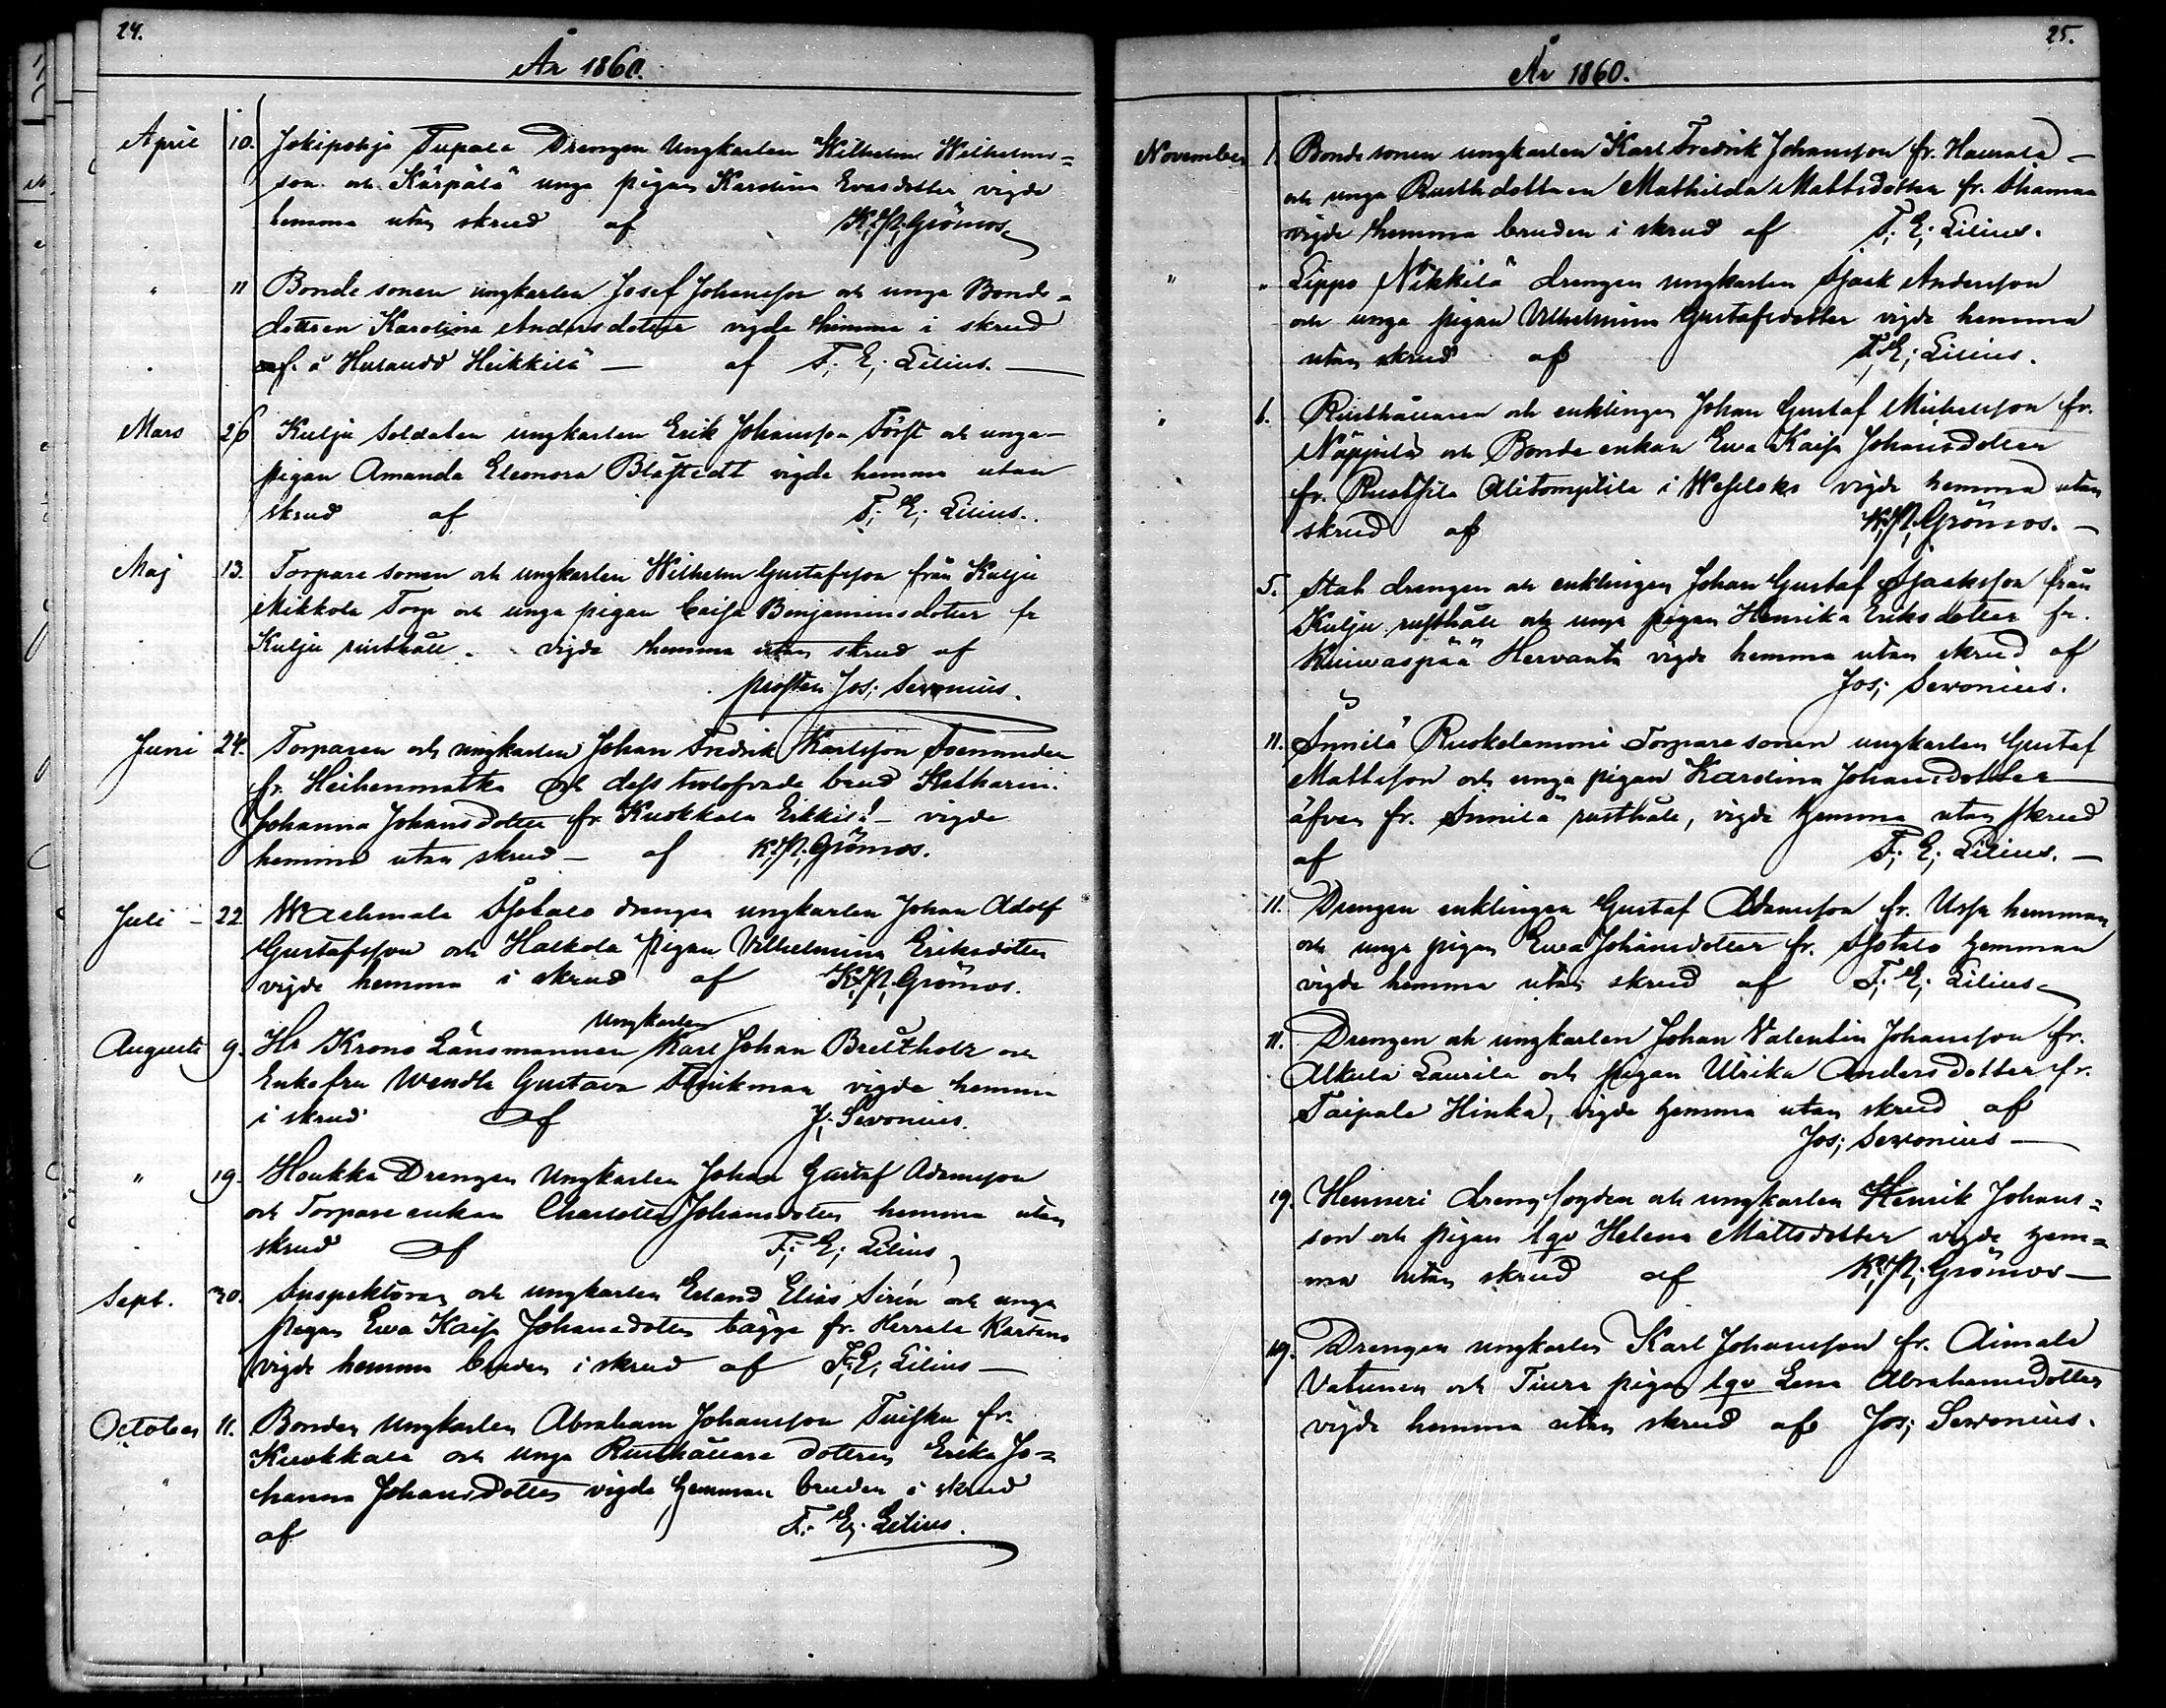 24.
År 1860.
April 10. Jokipohja Tupala Drengen Ungkarlen Wilhelm Wilhelms=
son och Kärpälä unga pigan Karolina Evasdotter vigde
hemma utan skrud af K. H. Grönros
" 11 Bonde sonen ungkarlen Josef Johansson och unga Bonde=
dottren Karolina Andersdotter vigde hemma i skrud
Heikkilä — af F. E. Lilius. —
Mars 26 Kulju Soldaten ungkarlen Erik Johansson och unga
pigan Amanda Eleonora vigde hemma utan
skrud af F. E. Lilius.
Maj 13. Torpare sonen och ungkarlen Wilhelm Gustafsson från Kulju
Mikkola Torp och unga pigan Caisa Benjaminsdotter fr
Kulju rusthåll. vigde hemma utan skrud af
prosten Jos; Sevonius.
Juni 24. Torparen och ungkarlen Johan Fredrik Karlsson
fr. och dess trolofvade brud Katharina
Johanna Johansdotter fr. Kuokkala — vigde
hemma utan skrud — af K. H. Grönros.
Juli — 22. Wachmala Sjötalo drengen ungkarlen Johan Adolf
Gustafsson och Halkola pigan Vilhelmina Eriksdotter
vigde hemma i skrud af K. H. Grönros.
ungkarlen
Augusti 9. Hr Krono Länsmannen Karl Johan och
Enkefru Wendla Gustava vigde hemma
i skrud af J. Sevonius.
" 19. Houkka Drengen Ungkarlen Johan Gustaf Adamsson
och Torpare enkan Charlotta Johansdotter hemma utan
skrud af F. E; Lilius
Sept. 30. Inspektoren och ungkarlen Erland Elias Sirén och unga
pigan Ewa Kaisa Johansdotter bägge fr. Herrala
vigde hemma bruden i skrud af F. E; Lilius —
October 11. Bonden Ungkarlen Abraham Johansson fr.
Kuokkala och unga Rusthållare dottren Erika Jo=
hanna Johansdotter vigde hemma bruden i skrud
af F. E; Lilius.
25.
År 1860.
November 1. Bonde sonen ungkarlen Karl Fredrik Johansson fr. Haurala —
och unga Rusth dottren Mathilda Mattsdotter fr.
vigde hemma bruden i skrud af F. E; Lilius.
" " Lippo Nikkilä drengen ungkarlen Isaak Andersson
och unga pigan Vilhelmina Gustafsdotter vigde hemma
utan skrud af F. E; Lilius.
" 6. Rusthållaren och enklingen Johan Gustaf Michelsson fr.
Näppilä och Bonde enkan Ewa Kaisa Johansdotter
fr. Alitompila i Wesilaks vigde hemma utan
skrud af K. H. Grönros. —
5. Stal drengen och enklingen Johan Gustaf Isaaksson från
Kulju rusthåll och unga pigan Henrika Eriksdotter fr.
Ruiwaspää Hervanta vigde hemma utan skrud af
Jos; Sevonius.
11. Innilä Ruokelammi Torpare sonen ungkarlen Gustaf
Mattsson och unga pigan Karolina Johansdotter
äfven fr. Innilä rusthåll, vigde hemma utan skrud
af F. E; Lilius. —
11. Drengen enklingen Gustaf Adamsson fr. hemman
och unga pigan Ewa Johansdotter fr. Sjötalo hemman
vigde hemma utan skrud af F. E; Lilius
11. Drengen och ungkarlen Johan Valentin Johansson fr.
Alkula Laurila och pigan Ulrika Andersdotter fr.
Taipale Hinka, vigde hemma utan skrud af
Jos; Sevonius —
19. Henneri drengfogden och ungkarlen Henrik Johans=
son och pigan lqv Helena Mattsdotter vigde hem=
ma utan skrud af K. H. Grönros —
19. Drengen ungkarlen Karl Johansson fr. Aimala
Vatunen och Tiura pigan lqv Lena Abrahamsdotter
vigde hemma utan skrud af Jos; Sevonius.